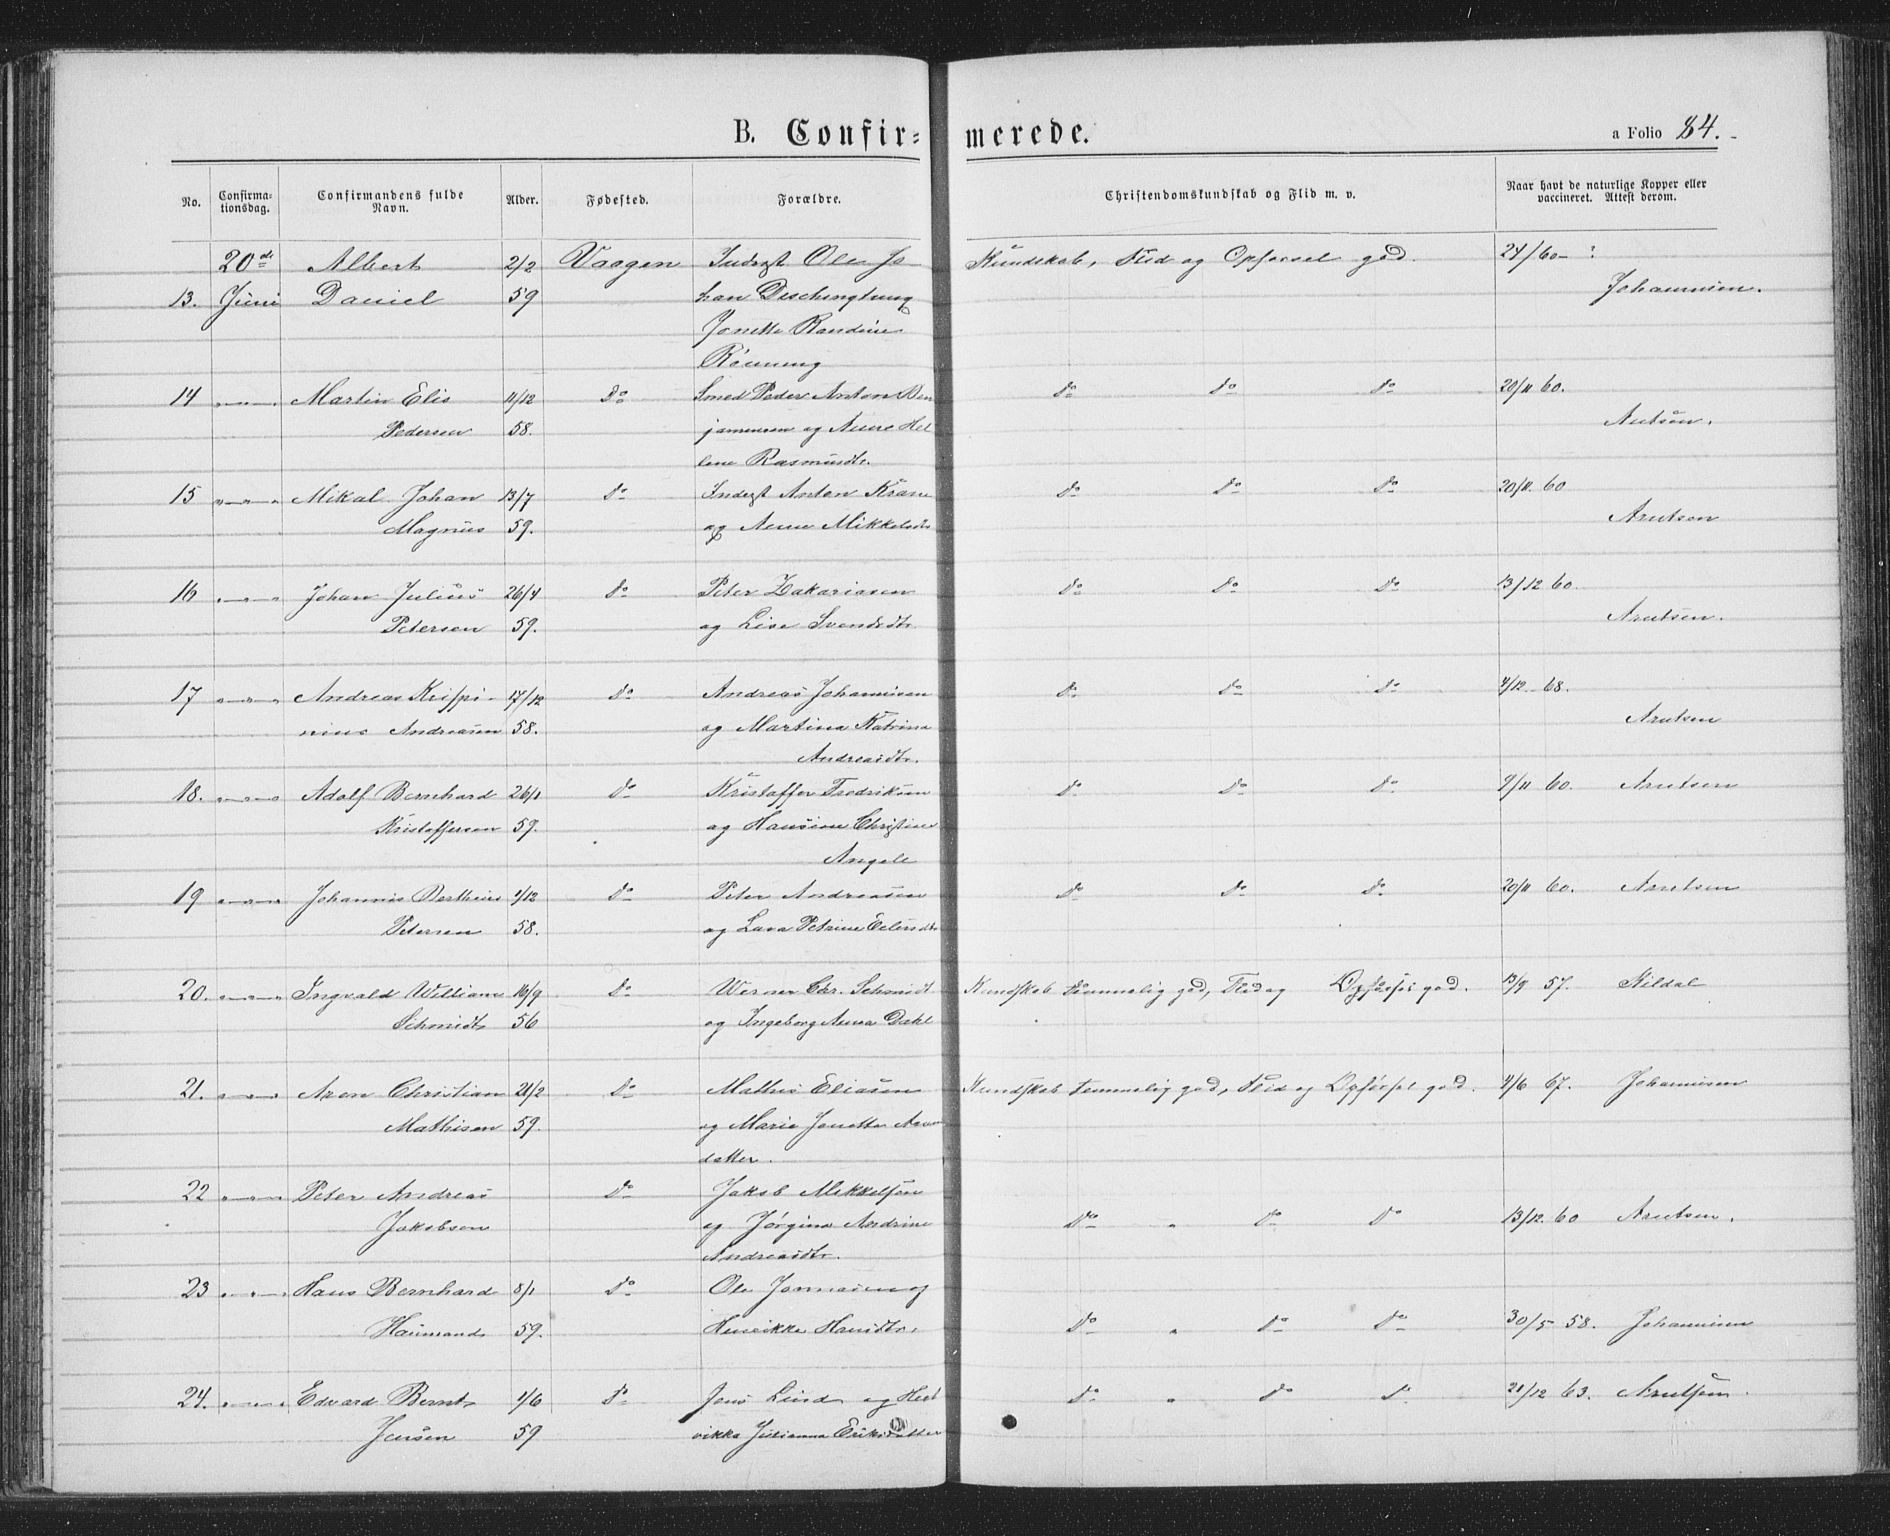 B. Confir= merede. a Folio 84.
No. Confirma-tionsdag. Confirmandens fulde Navn. Alder. Fødested. Forældre. Christendomskundskab og Flid m. v. Naar havt de naturlige Kopper eller vaccineret. Attest derom.
20de Albert 2/2 Vaagen Inderst Ole Jo Kundskab, Flid og Opførsel god. 24/60 - ?
13. Juni Daniel 59 Johannesen.
Jonette Randine
Rönning
14 Martin Elis 11/12 Do Smed Peder Anton Ben Do Do Do 20/11 60.
Pedersen 58. jaminsen og Anne Hel Arntsen.
lene Rasmusdtr.
15 Mikal Johan 13/7 Do Inderst Anton Krane Do Do Do 20/11 60
Magnus 59. og Anne Mikkelsdtr Arntsen
16 Johan Julius 26/4 Do Peter Zakariasen Do Do Do 13/12 60.
Petersen 59. og Lise Svendsdtr Arntsen.
17 Andreas Krispi- 17/12 Do Andreas Johannesen Do Do Do 4/12 68.
nius Andreasen 58. og Martina Katrina Arntsen
Andreasdtr.
18. Adolf Bernhard 26/1 Do Kristoffer Fredriksen Do Do Do 9/11 60. Arntsen
Kristoffersen 59. og Hansine Christine
Angell
19 Johannes Bertheus 1/12 Do Peter Andreasen Do Do Do 20/11 60. Arntsen
Petersen 58. og Lava Petrine Eilersdtr
20. Ingvald William 16/9 Do Werner Chr. Schmidt Kundskab temmelig god, Flid og Opførsel god. 13/9 57. Kildal
Schmidt 56 og Ingeborg Anna Dahl
21. Aron Christian 21/2 Do Mathis Eliasen Kundskab temmelig god, Flid og Opførsel god. 4/6 67. Johannesen
Mathisen 59. og Marie Jonette
datter.
22 Peter Andreas Do Jakob Mikkelsen
Jakobsen og Jørgine Andrine Do " Do Do 13/12 60 Arntsen.
Andreasdtr.
23 Hans Bernhard 8/1 Do Ole Jonassen og
59. Henrikke Hansdtr. Do " Do Do 30/5 58. Johannesen
24. Edvard Bernt 1/6 Do Jens Lind og Hed Do " Do Do 21/12 63. Arntsen.
Jensen 59 vikka Julianna Eriksdatter